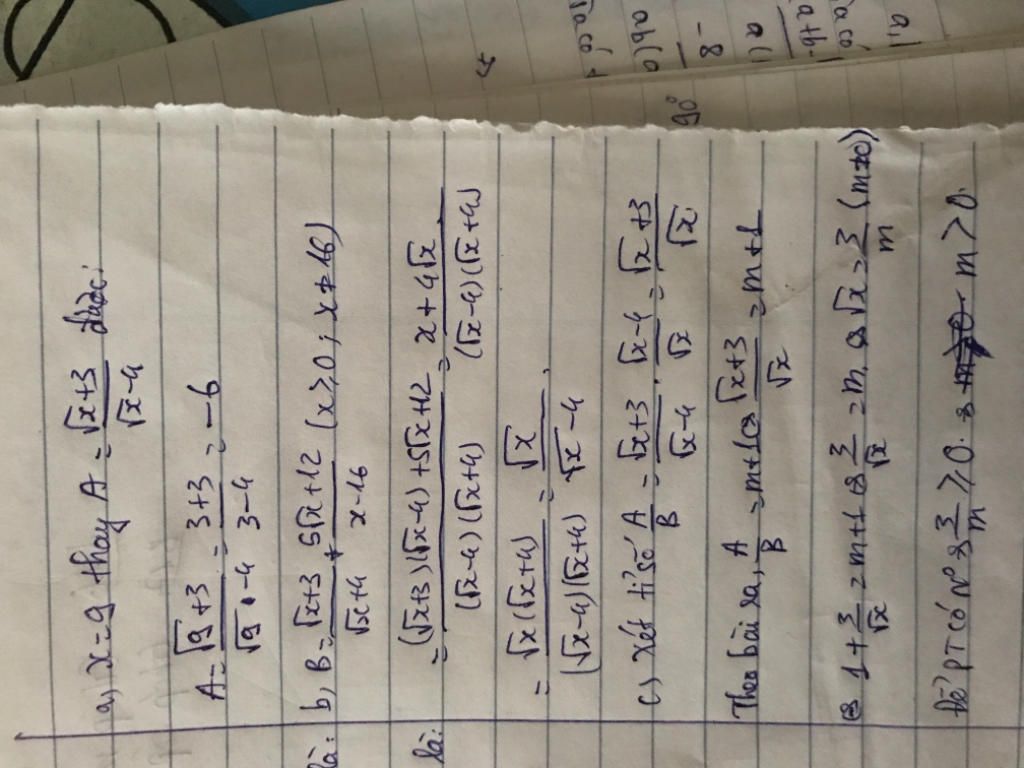 a, x = 9 thay A = (√x + 3)/(√x - 4) được:
A = (√9 + 3)/(√9 - 4) = (3 + 3)/(3 - 4) = -6
b) B = (√x + 3)/(√x + 4) + (5√x + 12)/(x - 16) (x ≥ 0; x ≠ 16)
= ((√x + 3)(√x - 4) + 5√x + 12)/((√x - 4)(√x + 4)) = (x + 4√x)/((√x - 4)(√x + 4))
= (√x(√x + 4))/((√x - 4)(√x + 4)) = √x/(√x - 4).
c) Xét tỉ số A/B = (√x + 3)/(√x - 4) . (√x - 4)/√x = (√x + 3)/√x
Theo bài ra, A/B = m + 1 ⇔ (√x + 3)/√x = m + 1
⇔ 1 + 3/√x = m + 1 ⇔ 3/√x = m ⇔ √x = 3/m (m ≠ 0)
Để PT có No ⇔ 3/m ≥ 0. ⇔ m > 0.
là:
là:
90°